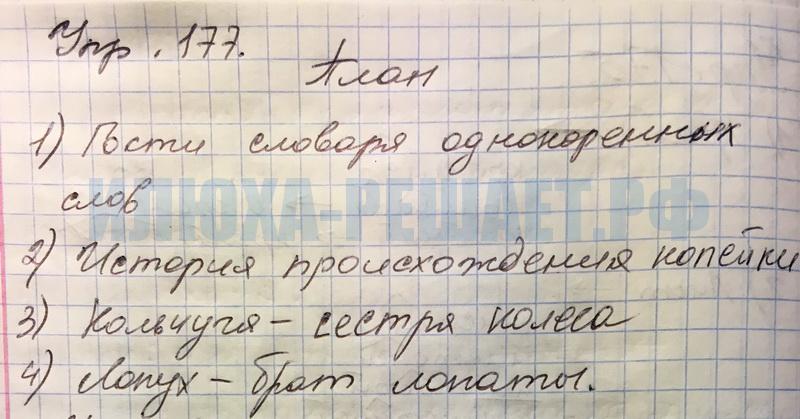 Упр. 177.
План
1) Гости словаря однокоренных
слов
ИЛЮХА-РЕШАЕТ.РФ
2) История происхождения копейки
3) Кольчуга - сестра колеса
4) Лопух - брат лопаты.